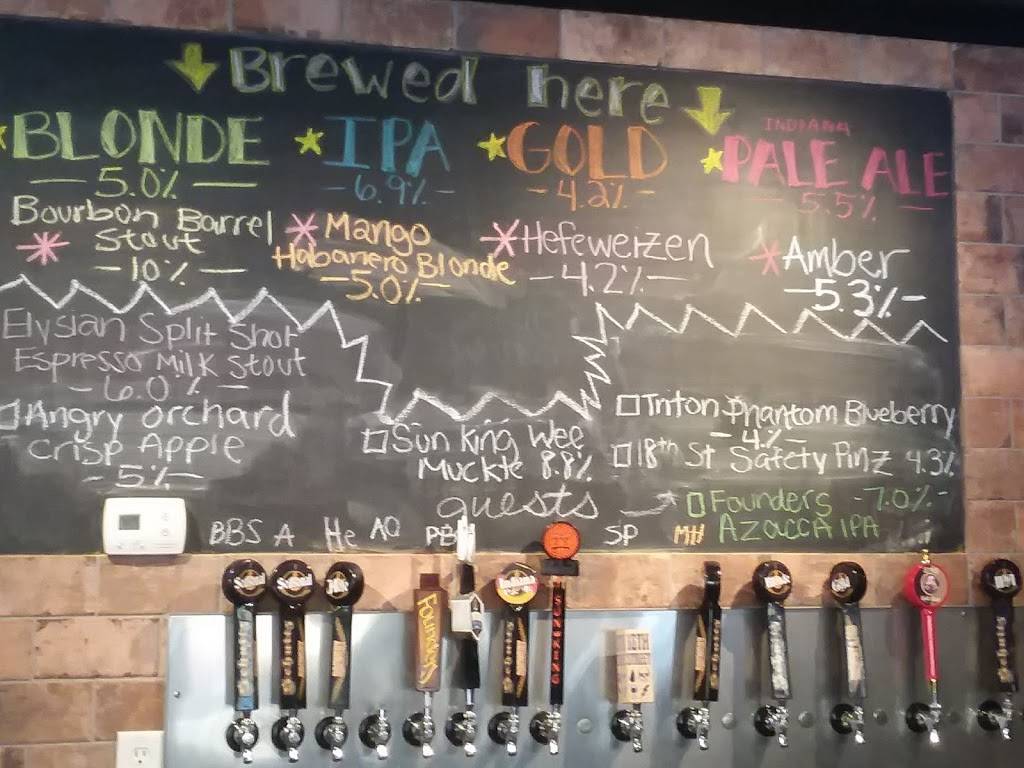 Brewed here
BLONDE
5.0%
IPA
6.9%
GOLD
4.2%
INDIANA
PALE ALE
5.5%
Bourbon Barrel
Stout
10%
Mango
Habanero Blonde
5.0%
Hefeweizen
4.2%
Amber
5.3%
Elysian Split Shot
Espresso Milk Stout
6.0%
Angry orchard
Crisp Apple
5%
Sun King Wee
Muckle 8.8%
Triton Phantom Blueberry
4%
18th St Safety Pinz 4.3%
guests
Founders -7.0%-
AZACCA IPA
BBS A He AO
SP
MH
FOUNDERS
SUN KING